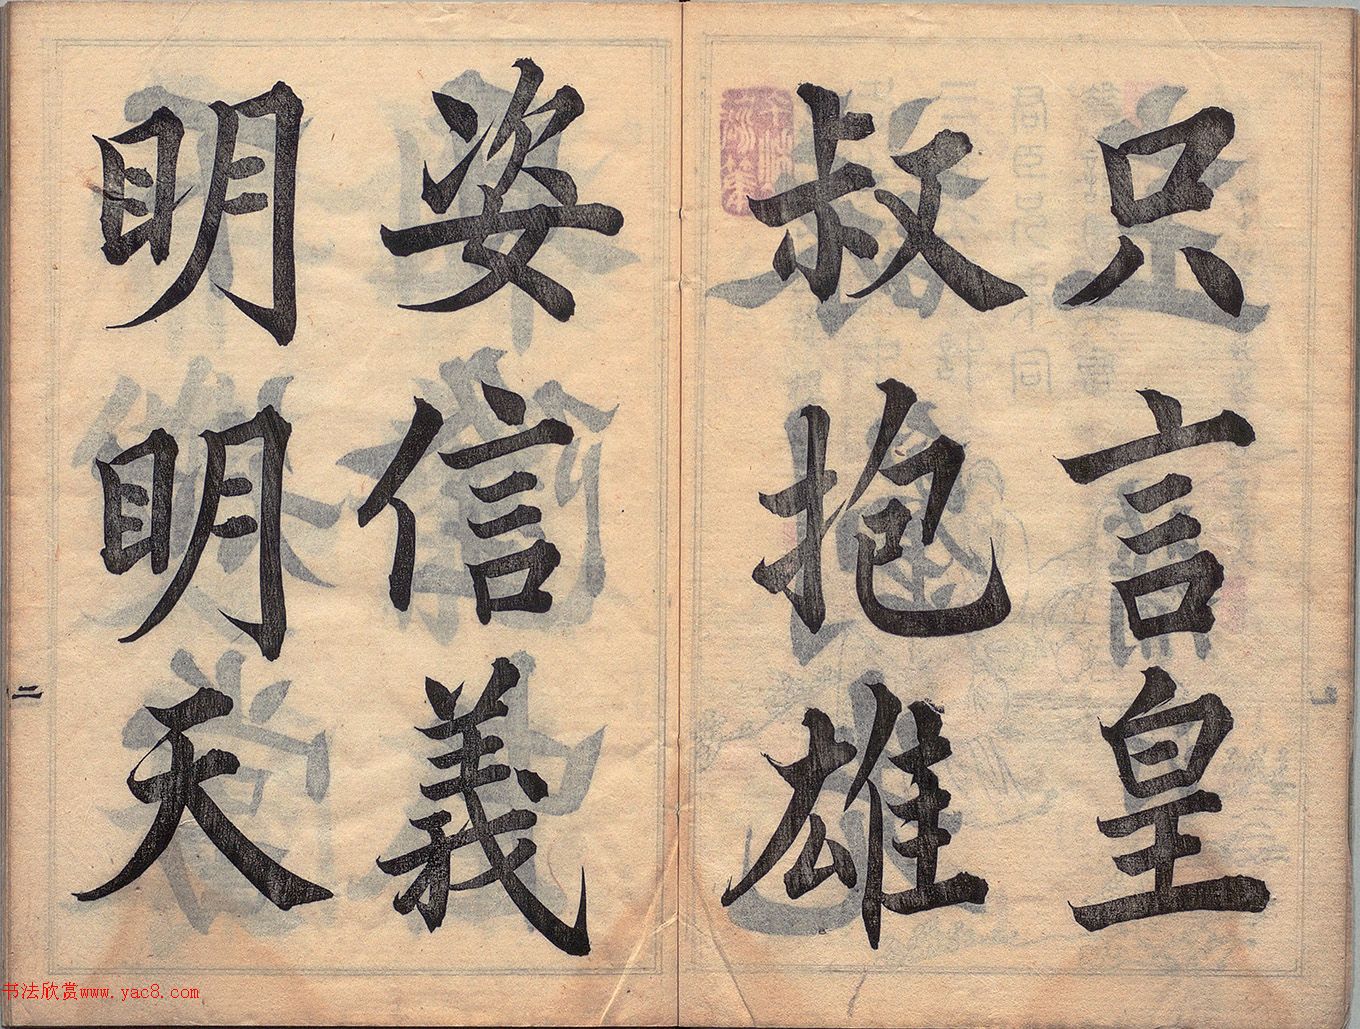 只言皇
叔抱雄
姿信義
明明天
二
书法欣赏www.yac8.com